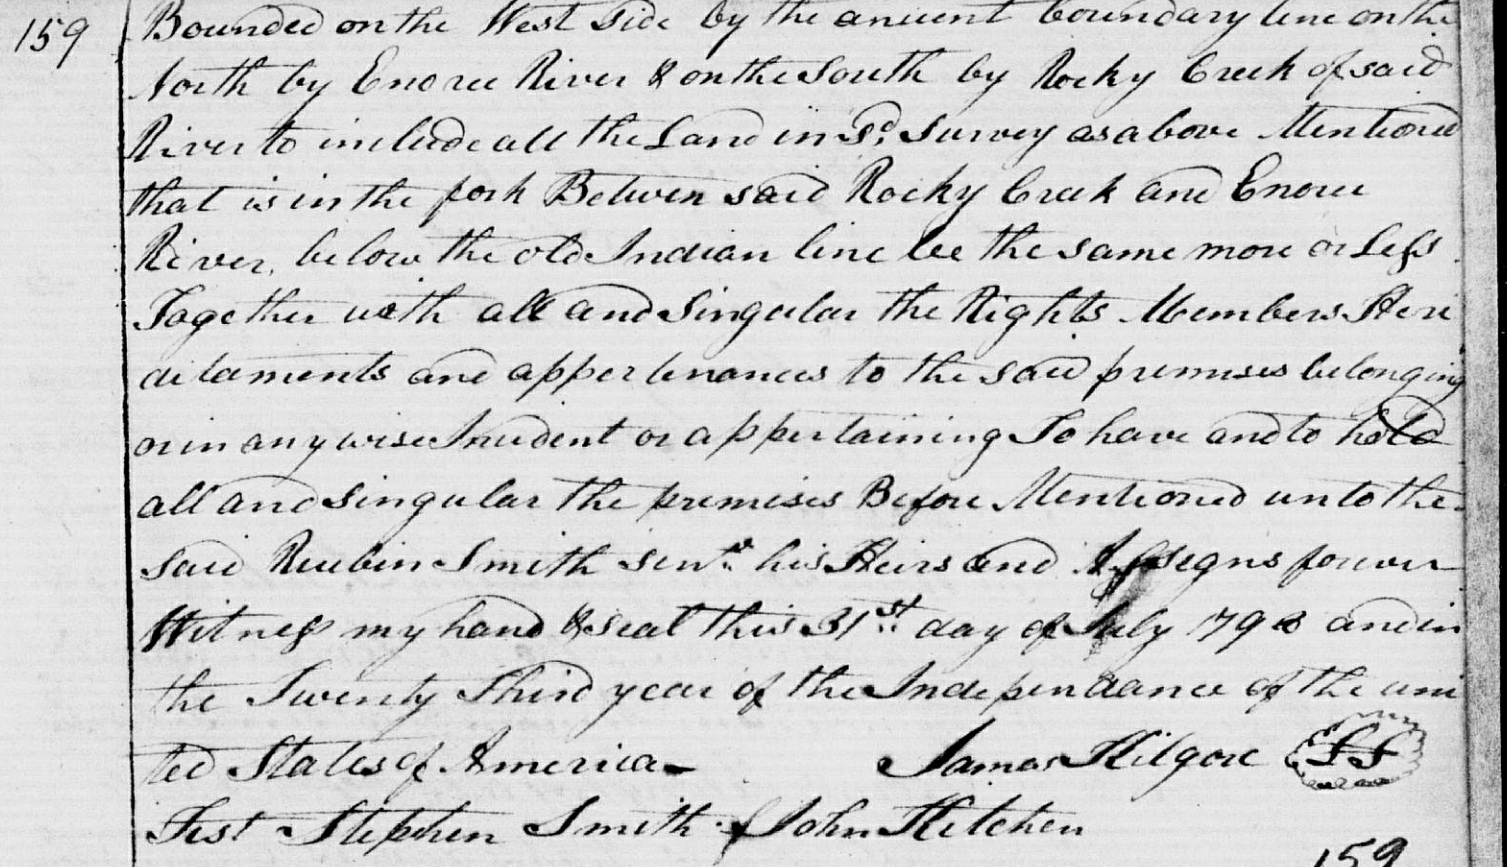 159
Bounded on the West Side by the anciient boundary line on the
North by Enoree River & on the South by Rocky Creek of said
River to include all the Land in Sd. Survey as above Mentioned
that is in the fork Betwen said Rocky Creek and Enoree
River, below the old Indian line be the same more or Less
Together with all and Singular the Rights Members Here
ditaments and appertenances to the said premises belonging
or in any wise Incident or appertaining To have and to hold
all and singular the premises Before Mentioned unto the
said Reubin Smith senr. his Heirs and Assigns forever
Witness my hand & seal this 31st day of July 1798 and in
the Twenty Third year of the Independance of the uni
ted States of America
James Kilgore LS
Test Stephen Smith John Kitchen
159